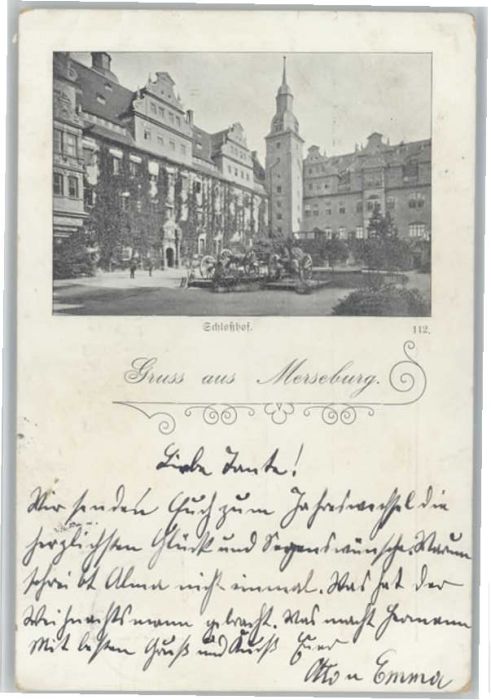 Schloßhof.
112.
Gruss aus Merseburg.
Liebe Tante!
Wir senden Euch zum Jahreswechsel die
herzlichsten Glück und Segenswünsche. Warum
schreibt Alma nicht einmal. Was hat der
Weihnachtsmann gebracht. Was macht Hermann
Mit besten Gruß und Kuß Euer
Otto u Emma